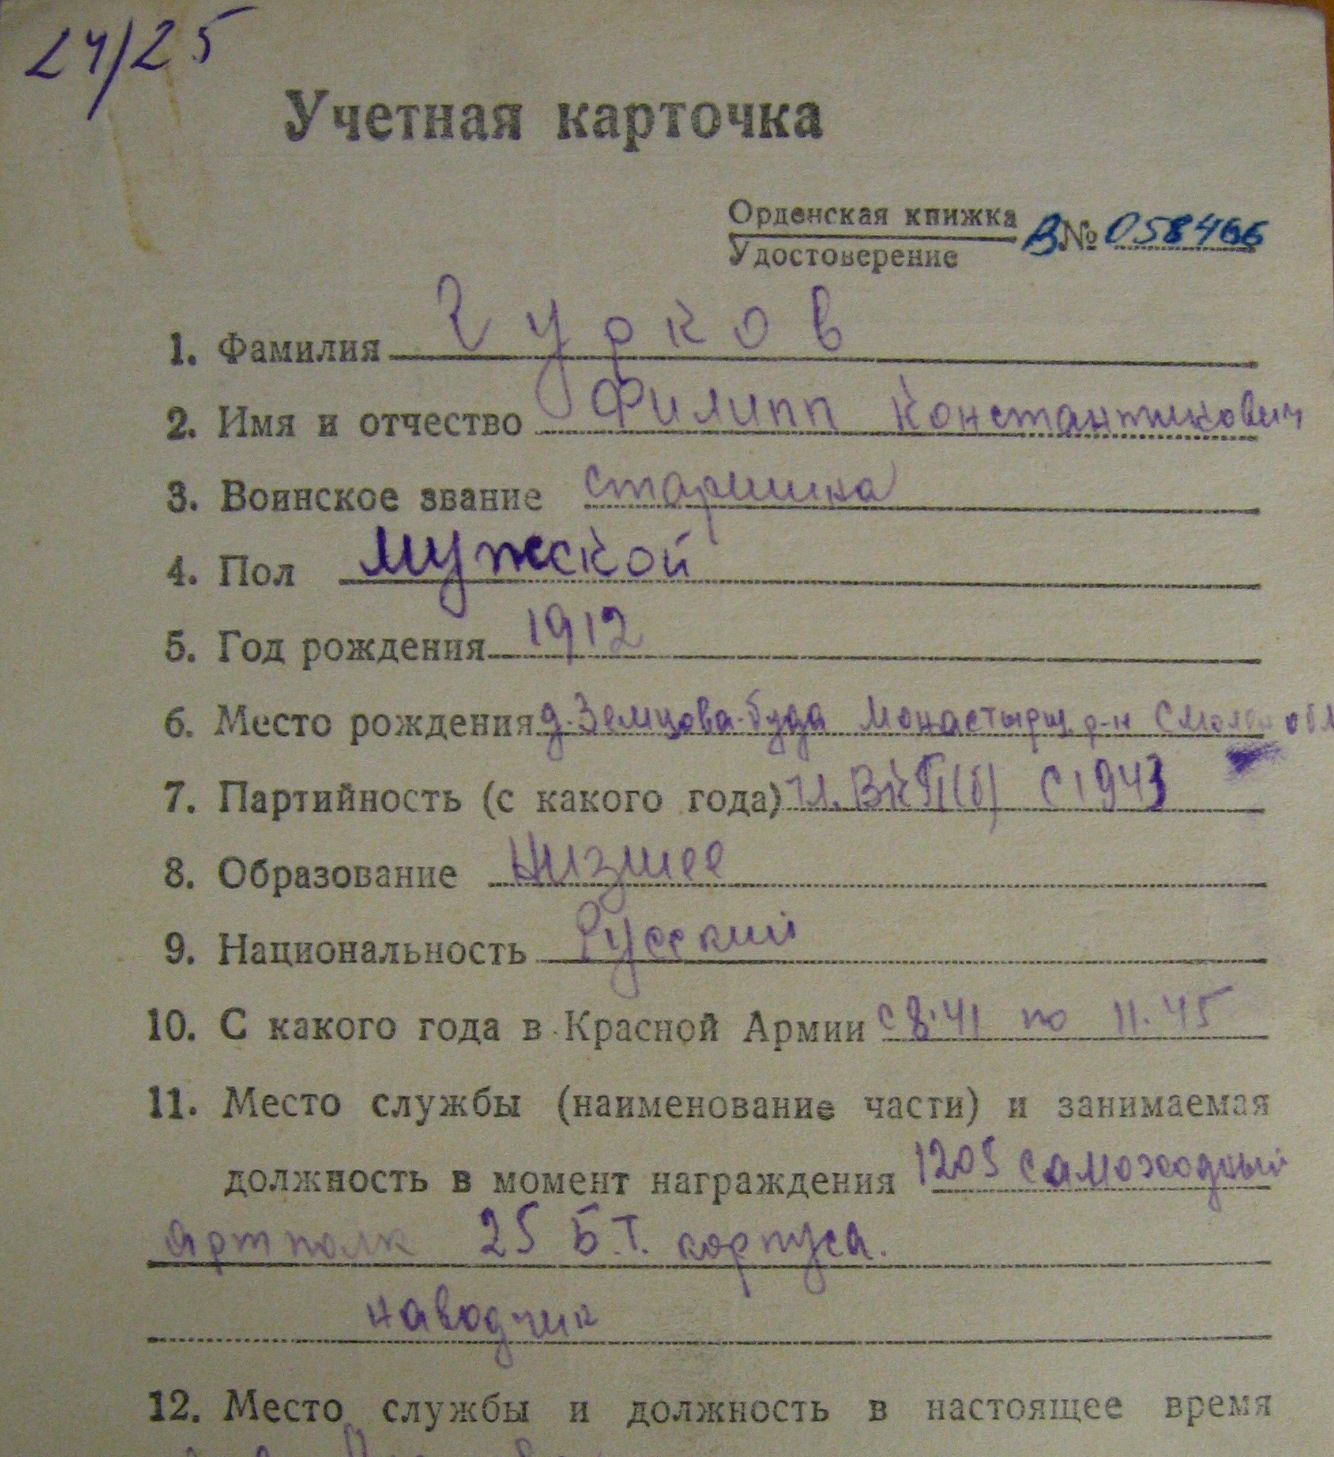 24/25
Учетная карточка
Орденская книжка
Удостоверение
В № 058466
1. Фамилия Чурков
2. Имя и отчество Филипп Константинович
3. Воинское звание старшина
4. Пол мужской
5. Год рождения 1912
6. Место рождения д. Земцова-буда Монастырщ. р-н Смолен обл
7. Партийность (с какого года) чл. ВКП(б) с 1943
8. Образование Низшее
9. Национальность Русский
10. С какого года в Красной Армии с 8.41 по 11.45
11. Место службы (наименование части) и занимаемая
должность в момент награждения 1205 самоходный
артполк 25 Б.Т. корпуса.
наводчик
12. Место службы и должность в настоящее время